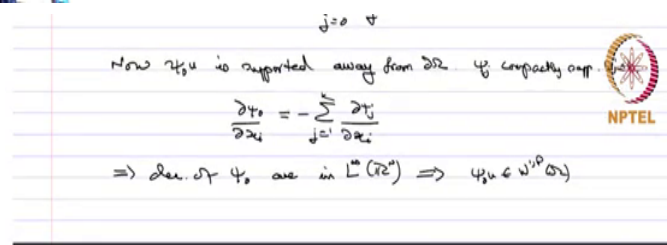 j=0
Now ψ₀u is supported away from ∂Ω. ψⱼ compactly supp.
∂ψ₀/∂xᵢ = -∑ⱼ₌₁ᵏ ∂ψⱼ/∂xᵢ
NPTEL
⇒ der. of ψ₀ are in L^∞(ℝⁿ) ⇒ ψ₀u ∈ W^{1,p}(Ω)